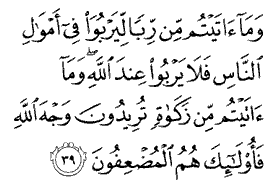 وَمَآ ءَاتَيْتُم مِّن رِّبًا لِّيَرْبُوَا۟ فِىٓ أَمْوَٰلِ
ٱلنَّاسِ فَلَا يَرْبُوا۟ عِندَ ٱللَّهِ ۖ وَمَآ
ءَاتَيْتُم مِّن زَكَوٰةٍ تُرِيدُونَ وَجْهَ ٱللَّهِ
فَأُو۟لَـٰٓئِكَ هُمُ ٱلْمُضْعِفُونَ ٣٩